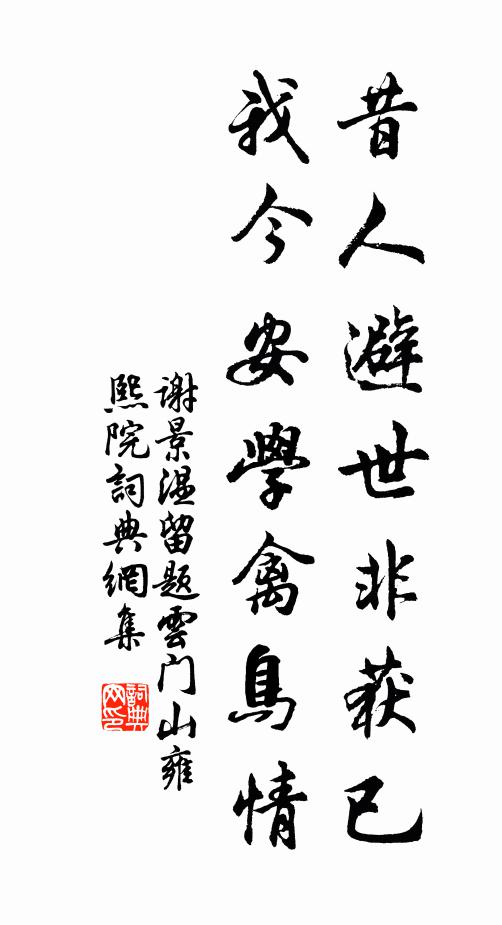 昔人避世非获已
我今安學禽鳥情
謝景溫留题雲门山雍
熙院詞典網集
詞典
网印